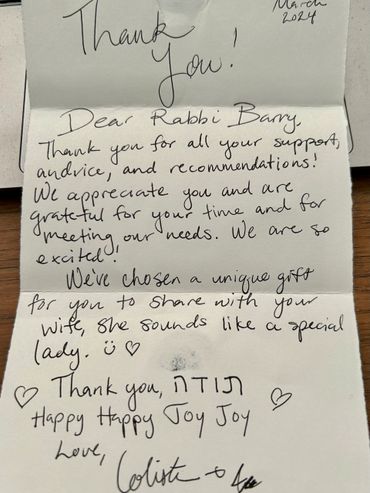 March
2024
Thank
You!
Dear Rabbi Barry,
Thank you for all your support,
andvice, and recommendations!
We appreciate you and are
grateful for your time and for
meeting our needs. We are so
excited!
We've chosen a unique gift
for you to share with your
wife, she sounds like a special
lady. ☺ ♡
♡ Thank you, תודה ♡
Happy Happy Joy Joy
Love,